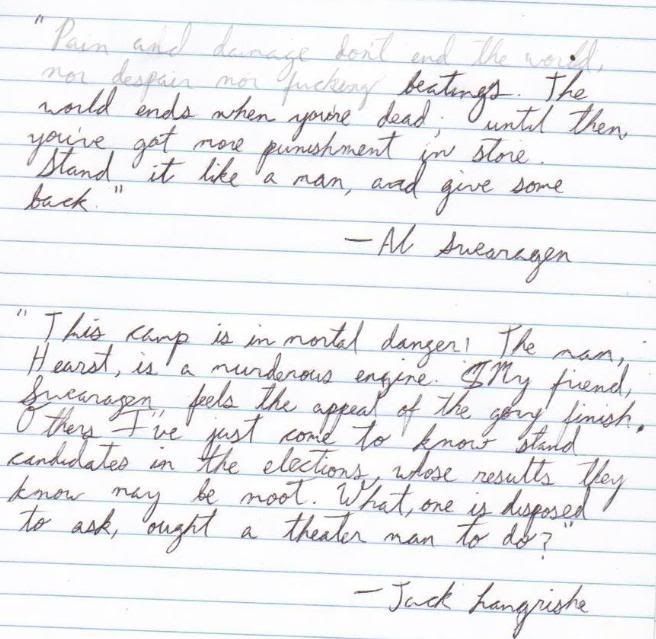 "Pain and damage don't end the world,
nor despair nor fucking beatings. The
world ends when you're dead; until then,
you've got more punishment in store.
Stand it like a man, and give some
back."
—Al Swearagen
"This camp is in mortal danger! The man,
Hearst, is a murderous engine. My friend,
Swearagen feels the appeal of the gory finish.
Others I've just come to know stand
candidates in the elections, whose results they
know may be moot. What, one is disposed
to ask, ought a theater man to do?"
—Jack Langrishe